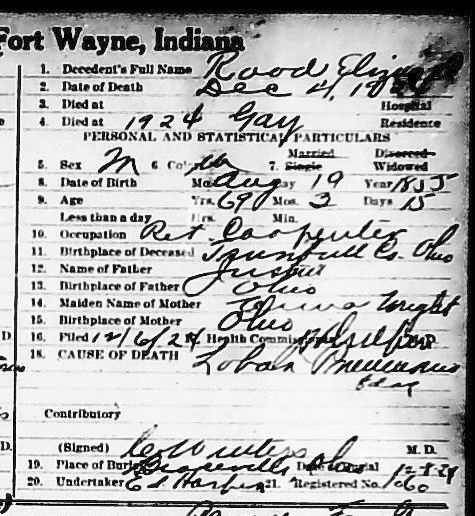 Fort Wayne, Indiana
1. Decedent's Full Name Rood
2. Date of Death Dec 4, 1924
3. Died at Hospital
4. Died at 1924 Gay Residence
PERSONAL AND STATISTICAL PARTICULARS
5. Sex M 6. Color W 7. Married Single Divorced Widowed
8. Date of Birth Mo. Aug Day 19 Year 1855
9. Age Yrs. 69 Mos. 3 Days 15
Less than a day Hrs. Min.
10. Occupation Ret Carpenter
11. Birthplace of Deceased Trumbull Co. Ohio
12. Name of Father
13. Birthplace of Father Ohio
14. Maiden Name of Mother Wright
15. Birthplace of Mother Ohio
16. Filed 12/6/24 Health Commissioner
18. CAUSE OF DEATH Lobar Pneumonia
Contributory
(Signed) M. D.
19. Place of Burial Date of Burial 12-8-24
20. Undertaker 21. Registered No. 1060